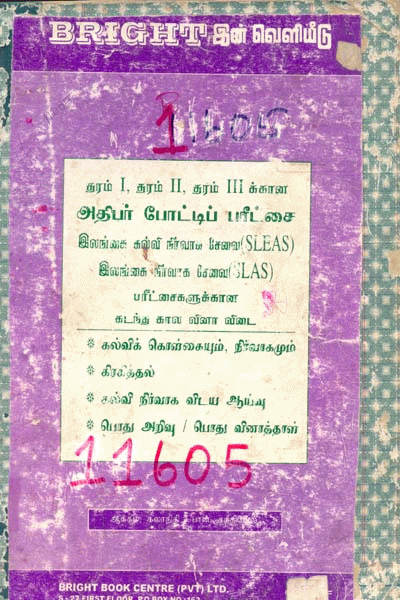 BRIGHT இன் வெளியீடு
11605
தரம் I, தரம் II, தரம் III க்கான
அதிபர் போட்டிப் பரீட்சை
இலங்கை கல்வி நிர்வாக சேவை(SLEAS)
இலங்கை நிர்வாக சேவை(SLAS)
பரீட்சைகளுக்கான
கடந்து கால வினா விடை
* கல்விக் கொள்கையும், நிர்வாகமும்
* கிரகித்தல்
* கல்வி நிர்வாக விடய ஆய்வு
* பொது அறிவு / பொது வினாத்தாள்
11605
BRIGHT BOOK CENTRE (PVT) LTD.
S - 27 FIRST FLOOR, P.O BOX NO : 162